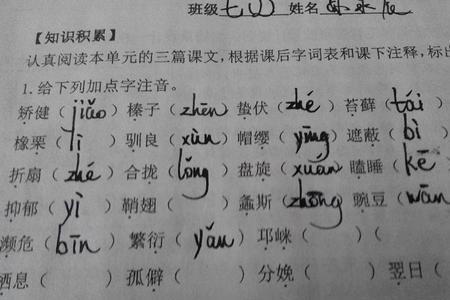 班级 七(2) 姓名
【知识积累】
认真阅读本单元的三篇课文,根据课后字词表和课下注释,标出
1. 给下列加点字注音。
矫健(jiǎo)榛子(zhēn)蛰伏(zhé)苔藓(tái)
橡栗(lì)驯良(xùn)帽缨(yīng)遮蔽(bì)
折扇(zhé)合拢(lǒng)盘旋(xuán)瞌睡(kē
抑郁(yì)鞘翅()螽斯(zhōng)豌豆(wān
濒危(bīn)繁衍(yǎn)邛崃()(
栖息()孤僻()分娩()翌日(